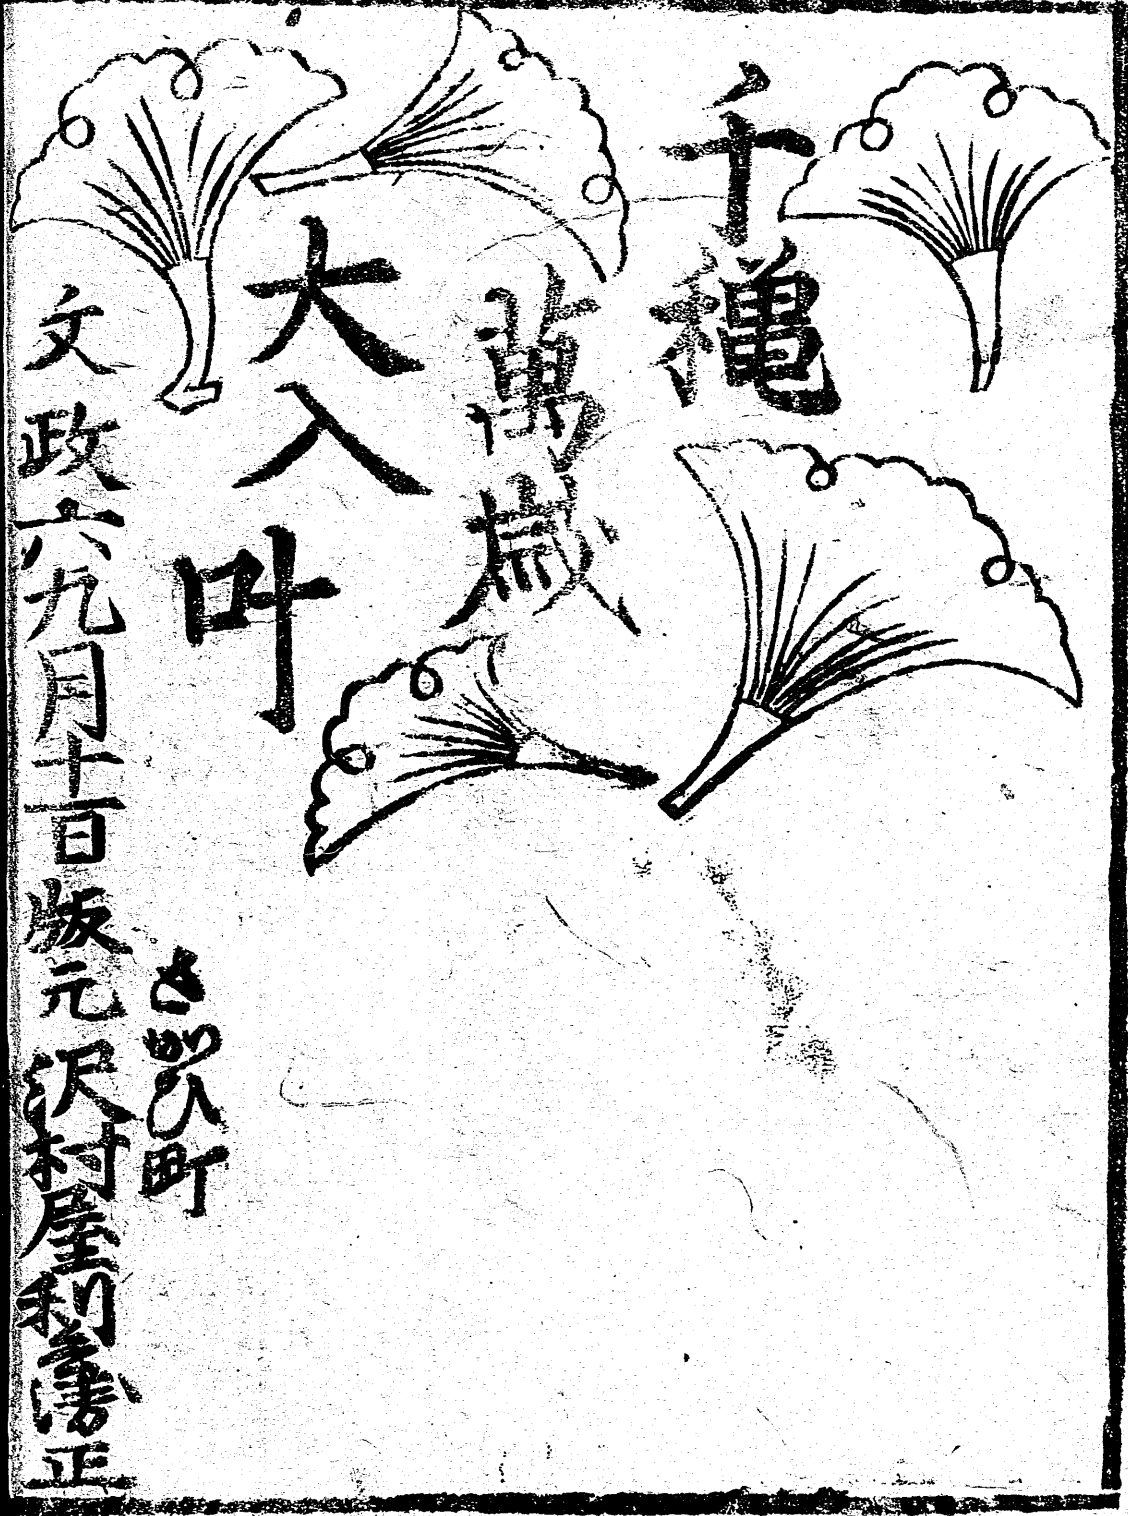 千穐
萬歳
大入
叶
さかひ町
文政六九月十一日版元沢村屋利兵衛正